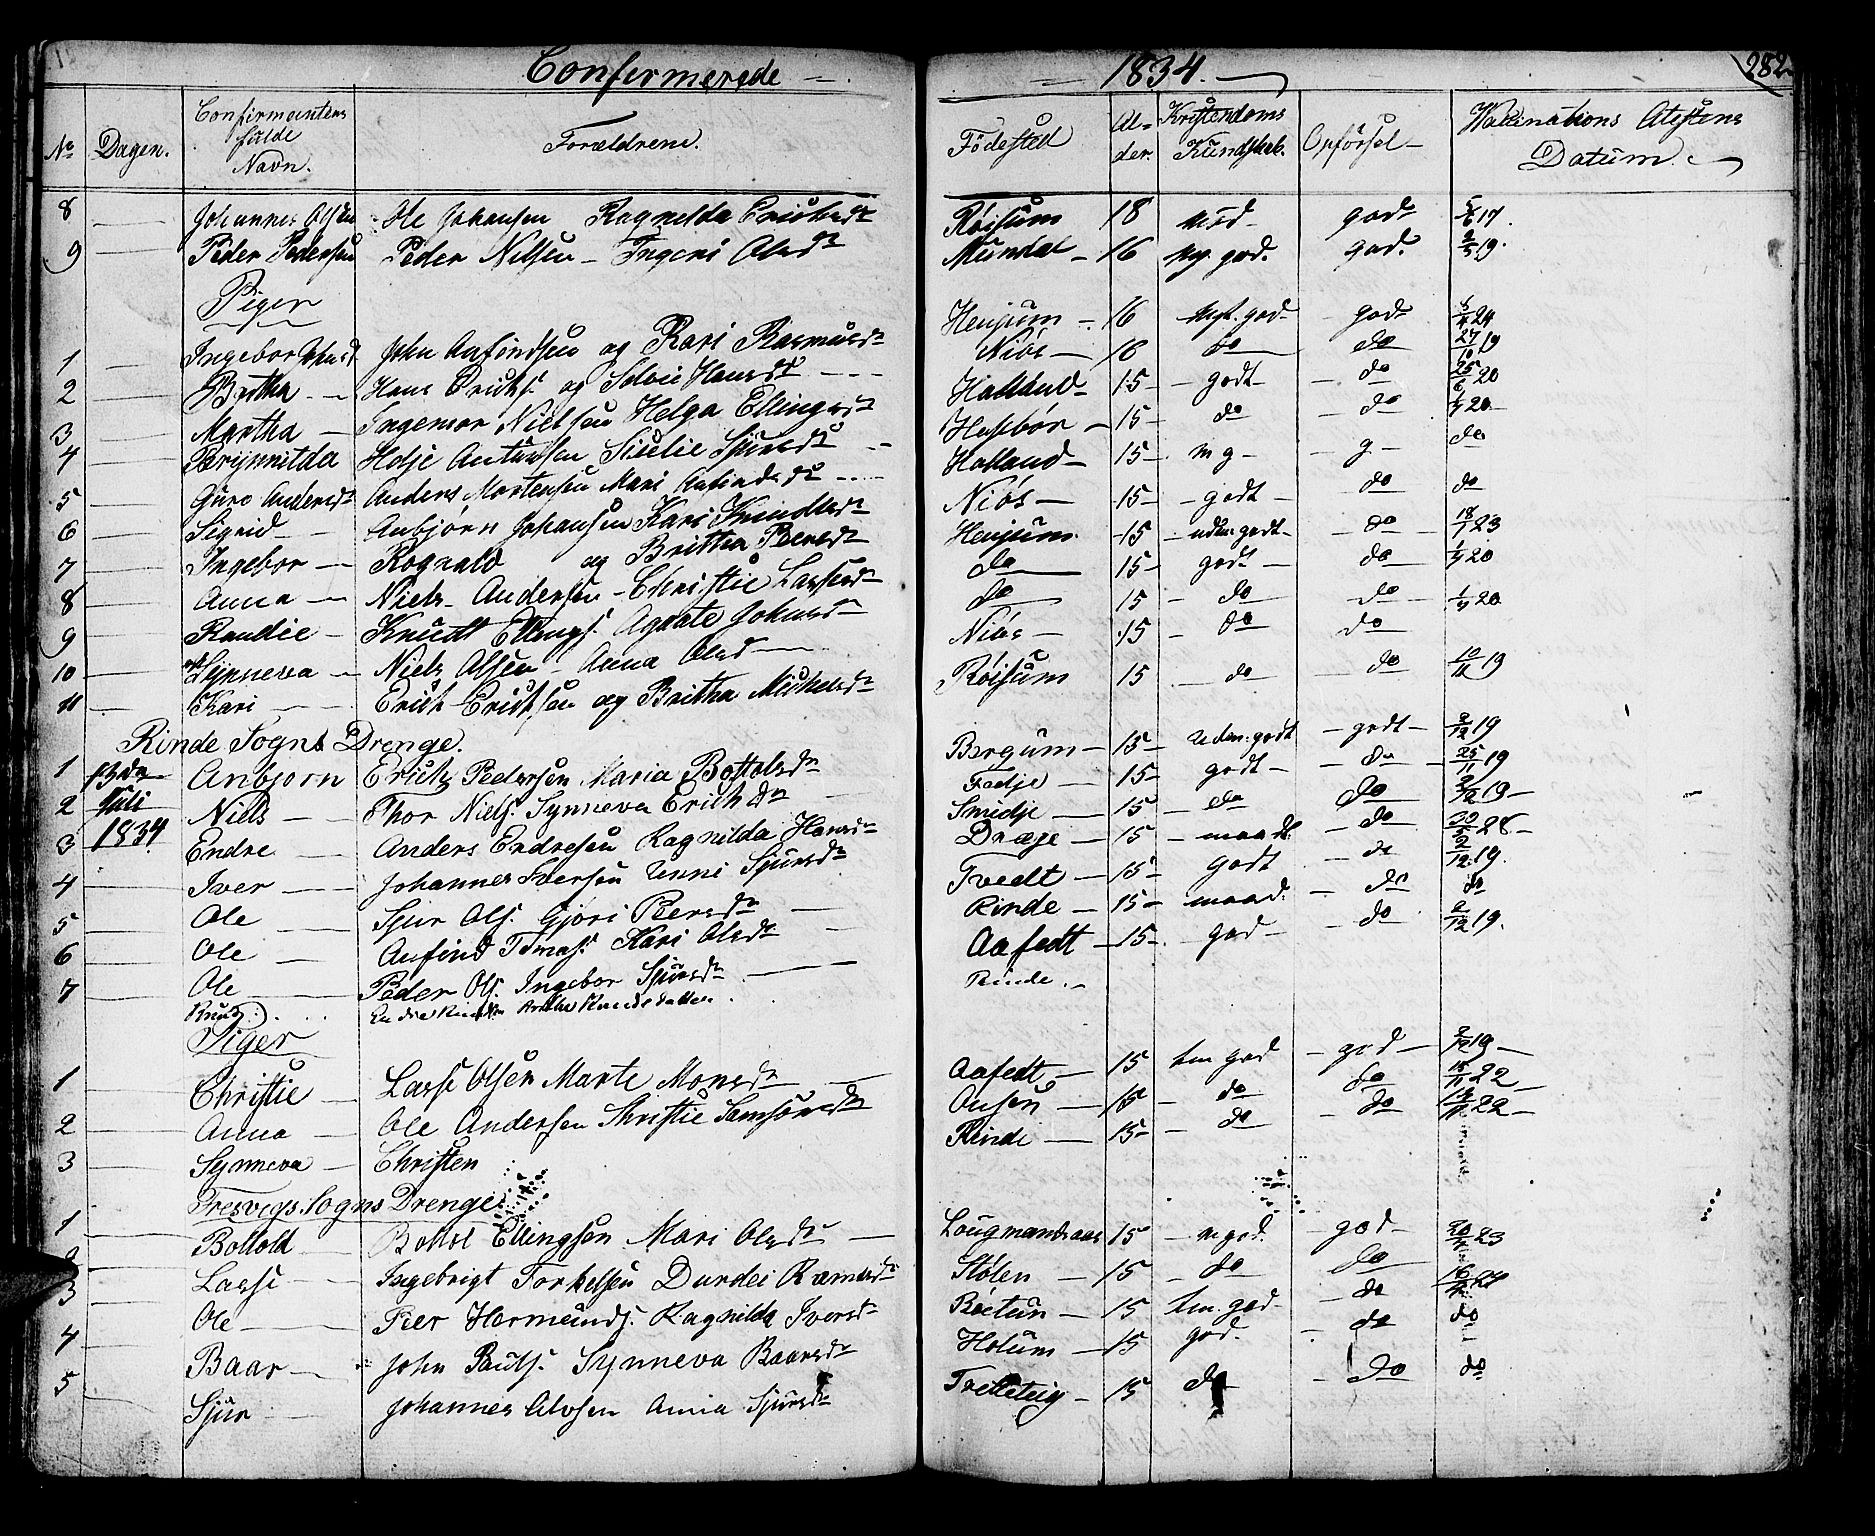 Confirmerede — 1834. 282
No Dagen. Confirmantens fulde Navn. Forældrene. Födested Alder. Kristendoms Kundskab. Opförsel Vaccinations Atestens Datum.
8 Johannes Olsen Ole Johansen Ragnilda Erichsdr Röisum 18 god 5/6 17.
9 Peder Pedersen Peder Nielsen Ingeri Olsdr Mundal 16 mg. god. god. 19.
Piger
1 Ingebor Johnsd John Anfindsen og Kari Rasmusdr Henjum 16 mgt. god god 24
2 Britha Hans Erichs. og Solvie Hansdr Niös 18 do do 27/10 19
3 Martha Ingemor Nielsen Helga Ellingsdr Halland 15 godt do 25/6 20
4 Brynnilda Holje Antunsen Siselie Sjursdr Husebör 15 do do 20
5 Guro Andersdr Anders Mortensen Mari Anfindsdr Halland 15 mg g do
6 Sigrid Anbjörn Johansen Kari Knudtsdr Niös 15 godt do do
7 Ingebor Rognald og Britha Peersdr Henjum 15 uden. godt do 18/1 23
8 Anna Niels Andersen Christie Larsdr do 15 godt do 20
9 Randie Knudt Ellings. Agate Johnsdr do 15 do do 20
10 Synneva Niels Olsen Anna Olsd Niös 15 do do
11 Kari Erich Erichsen og Britha Michelsdr Röisum 15 do do 10/11 19
Rinde Sogns Drenge.
1 13de Anbjorn Erich Pedersen Maria Bottolsdr Bergum 15 uden. godt godt 2/12 19
2 Juli Niels Thor Niels. Synneva Erichsdr Fedje 15 godt do 25/11 19
3 1834 Endre Anders Endresen Ragnilda Hansdr Smidje 15 do do 2/12 19
4 Iver Johannes Iversen Unni Sjursdr Dræge 15 maadt. do 28
5 Ole Sjur Ols. Gjöri Peersdr Tvedt 15 godt do 2/12 19.
6 Ole Anfind Tomas. Kari Olsdr Rinde 15 maad. do do
7 Ole Peder Ols. Ingebor Sjursdr Aafedt 15 god do 2/12 19.
Knud. Rinde
Piger
1 Christie Lasse Olsen Marte Monsdr Aafedt 15 tm god god 2/12 19
2 Anna Ole Andersen Christie Samsonsdr 15 do do 18/11 22
3 Synneva Christen Rinde 15 do do 22
Fresvigs Sogns Drenge.
1 Bottold Bottol Ellingsen Mari Olsdr Lougmandsaas 15 mgod. god 23
2 Lasse Ingebrigt Torkelsen Durdei Ramusdr Stölen 15 do do
3 Ole Peer Hermunds. Ragnilda Iversdr Böetun 15 tm. god do do
4 Baar John Pauls. Synneva Baarsdr Hotum 15 god. do
5 Sjur Johannes Olvsen Anna Sjursdr Tretteteig 15 do do do